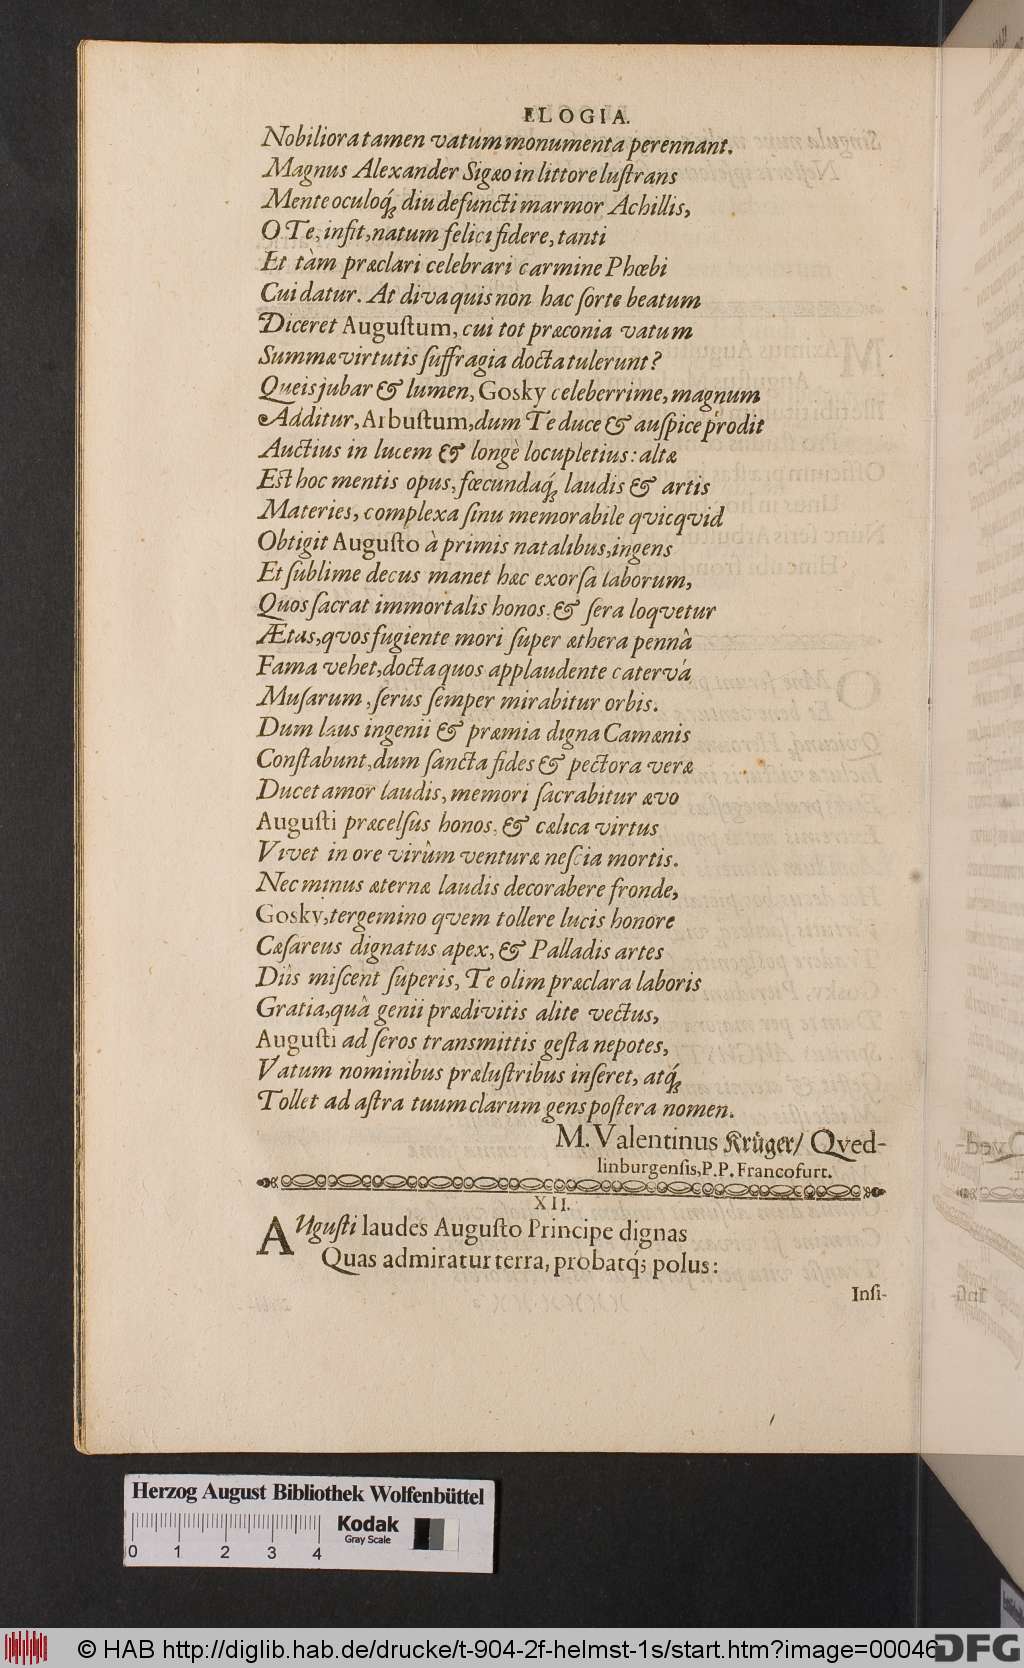 ELOGIA.
Nobiliora tamen vatum monumenta perennant.
Magnus Alexander Sigæo in littore luſtrans
Mente oculoq́; diu defuncti marmor Achillis,
O Te, inſit, natum felici ſidere, tanti
Et tàm præclari celebrari carmine Phœbi
Cui datur. At diva quis non hac ſorte beatum
Diceret Auguſtum, cui tot præconia vatum
Summæ virtutis ſuffragia docta tulerunt?
Queis jubar & lumen, Gosky celeberrime, magnum
Additur, Arbuſtum, dum Te duce & auſpice prodit
Auctius in lucem & longè locupletius: altæ
Eſt hoc mentis opus, fœcundaq́; laudis & artis
Materies, complexa ſinu memorabile qvicqvid
Obtigit Auguſto à primis natalibus, ingens
Et ſublime decus manet hæc exorſa laborum,
Quos ſacrat immortalis honos, & ſera loqvetur
Ætas, qvos fugiente mori ſuper æthera pennâ
Fama vehet, docta quos applaudente catervâ
Muſarum, ſerus ſemper mirabitur orbis.
Dum laus ingenii & præmia digna Camænis
Conſtabunt, dum ſancta fides & pectora veræ
Ducet amor laudis, memori ſacrabitur ævo
Auguſti præcelſus honos, & cælica virtus
Vivet in ore virûm venturæ neſcia mortis.
Nec minus æternæ laudis decorabere fronde,
Gosky, tergemino qvem tollere lucis honore
Cæſareus dignatus apex, & Palladis artes
Diis miſcent ſuperis, Te olim præclara laboris
Gratia, quâ genii prædivitis alite vectus,
Auguſti ad ſeros transmittis geſta nepotes,
Vatum nominibus præluſtribus inſeret, atq́;
Tollet ad aſtra tuum clarum gens poſtera nomen.
M. Valentinus Krüger/ Qved-
linburgenſis, P. P. Francofurt.
XII.
AUguſti laudes Auguſto Principe dignas
Quas admiratur terra, probatq́; polus:
Inſi-
Herzog August Bibliothek Wolfenbüttel
Kodak
Gray Scale
0 1 2 3 4
© HAB http://diglib.hab.de/drucke/t-904-2f-helmst-1s/start.htm?image=00046
DFG